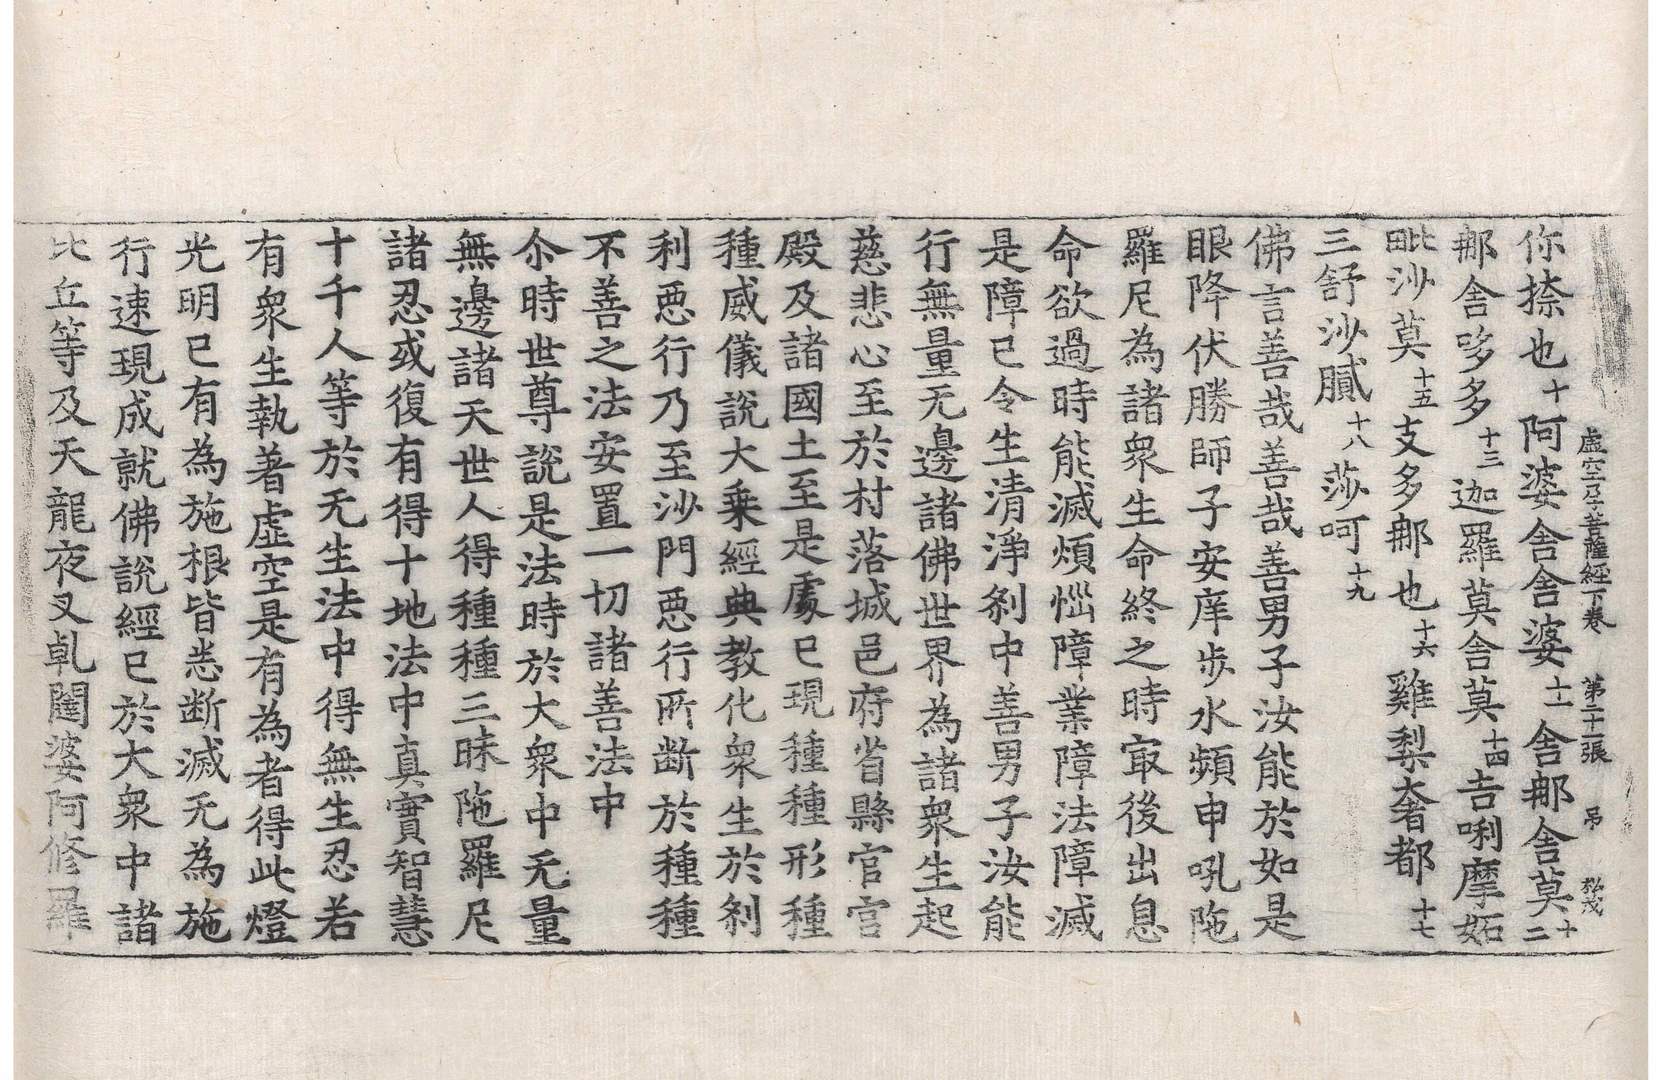 虛空孕菩薩經下卷　第二十一張　吊　松茂
你捺也十阿婆舍舍婆十一舍郍舍莫十二
郍舍哆多十三迦羅莫舍莫十四吉唎摩妬
毗沙莫十五支多郍也十六雞梨奢都十七
三舒沙膩十八莎呵十九
佛言善哉善哉善男子汝能於如是
眼降伏勝師子安庠步水頻申吼陁
羅尼為諸眾生命終之時㝡後出息
命欲過時能滅煩惱障業障法障滅
是障已令生清淨剎中善男子汝能
行無量无邊諸佛世界為諸眾生起
慈悲心至於村落城邑府省縣官宫
殿及諸國土至是處已現種種形種
種威儀說大乘經典教化眾生於剎
利惡行乃至沙門惡行所断於種種
不善之法安置一切諸善法中
尒時世尊說是法時於大眾中无量
無邊諸天世人得種種三昧陁羅尼
諸忍或復有得十地法中真實智慧
十千人等於无生法中得無生忍若
有眾生執著虛空是有為者得此燈
光明已有為施根皆悉断滅无為施
行速現成就佛說經已於大眾中諸
比丘等及天龍夜叉乹闥婆阿修羅